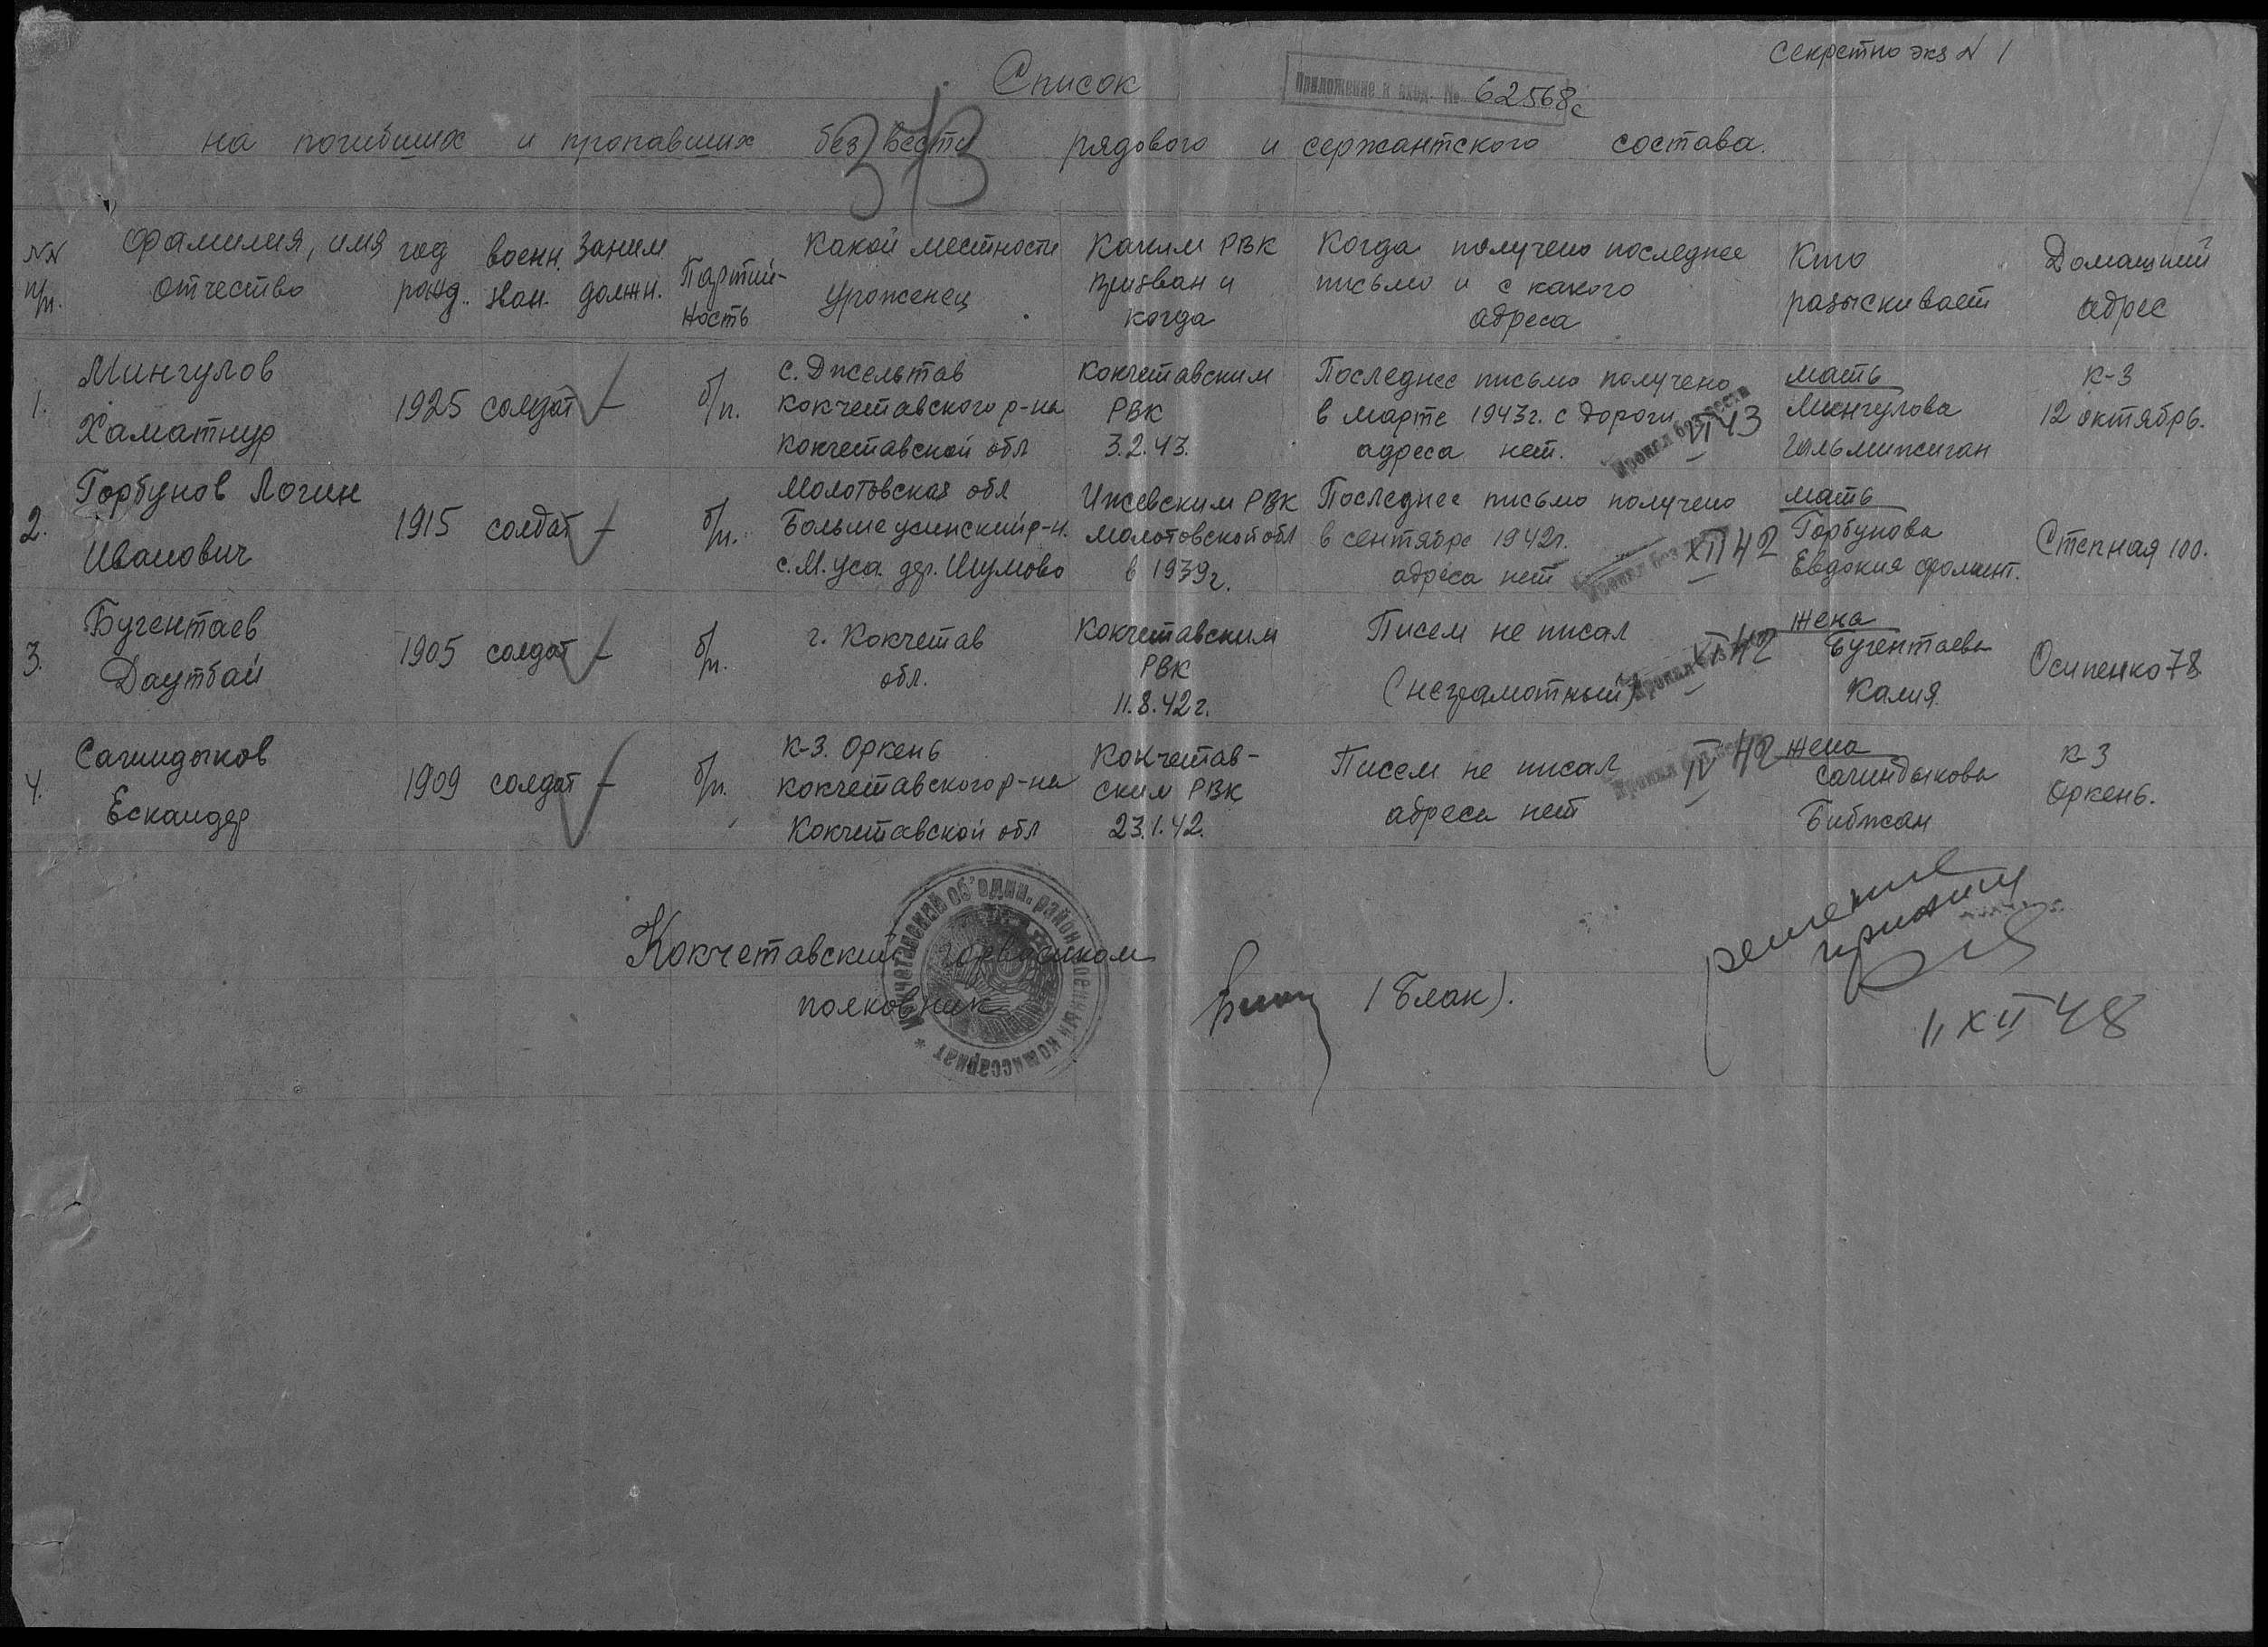 Секретно экз № 1
Список
Приложение к вход. № 62568с
на погибших и пропавших без вести рядового и сержантского состава.
373
№№ п/п.
Фамилия, имя отчество
год рожд.
воен. зван.
Заним. должн.
Партий-
ность
Какой местности
уроженец
Каким РВК
призван и
когда
Когда получено последнее
письмо и с какого
адреса
Кто
разыскивает
Домашний
адрес
1.
Мингулов
Хаматнур
1925
солдат
–
б/п.
с. Джельтав
Кокчетавского р-на
Кокчетавской обл
Кокчетавским
РВК
3.2.43.
Последнее письмо получено
в марте 1943г. с дороги
адреса нет.
Пропал без вести
VI 43
мать
Мингулова
к-з
12 октябрь.
2.
Горбунов Логин
Иванович
1915
солдат
–
б/п.
Молотовская обл
Больше усинский р-н.
с. М. Уса. дер. Шумово
Ижевским РВК
Молотовской обл
в 1939г.
Последнее письмо получено
в сентябре 1942г.
адреса нет
Пропал без вести
XII 42
мать
Горбунова
Евдокия
Степная 100.
3.
Бугентаев
Даутбай
1905
солдат
–
б/п.
г. Кокчетав
обл.
Кокчетавским
РВК
11.8.42г.
Писем не писал
(неграмотный)
Пропал без вести
42
жена
Бугентаева
Калия
Осипенко 78
4.
Сагиндыков
Ескандер
1909
солдат
–
б/п.
к-з. Оркень
Кокчетавского р-на
Кокчетавской обл
Кокчетав-
ским РВК
23.1.42.
Писем не писал
адреса нет
Пропал без вести
IV 42
жена
Сагиндыкова
Бибжан
к-з
Оркень.
Кокчетавский горвоенком
полковник
/Блак).
Кокчетавский об'един. район. военный комиссариат
решение
11 XII 48